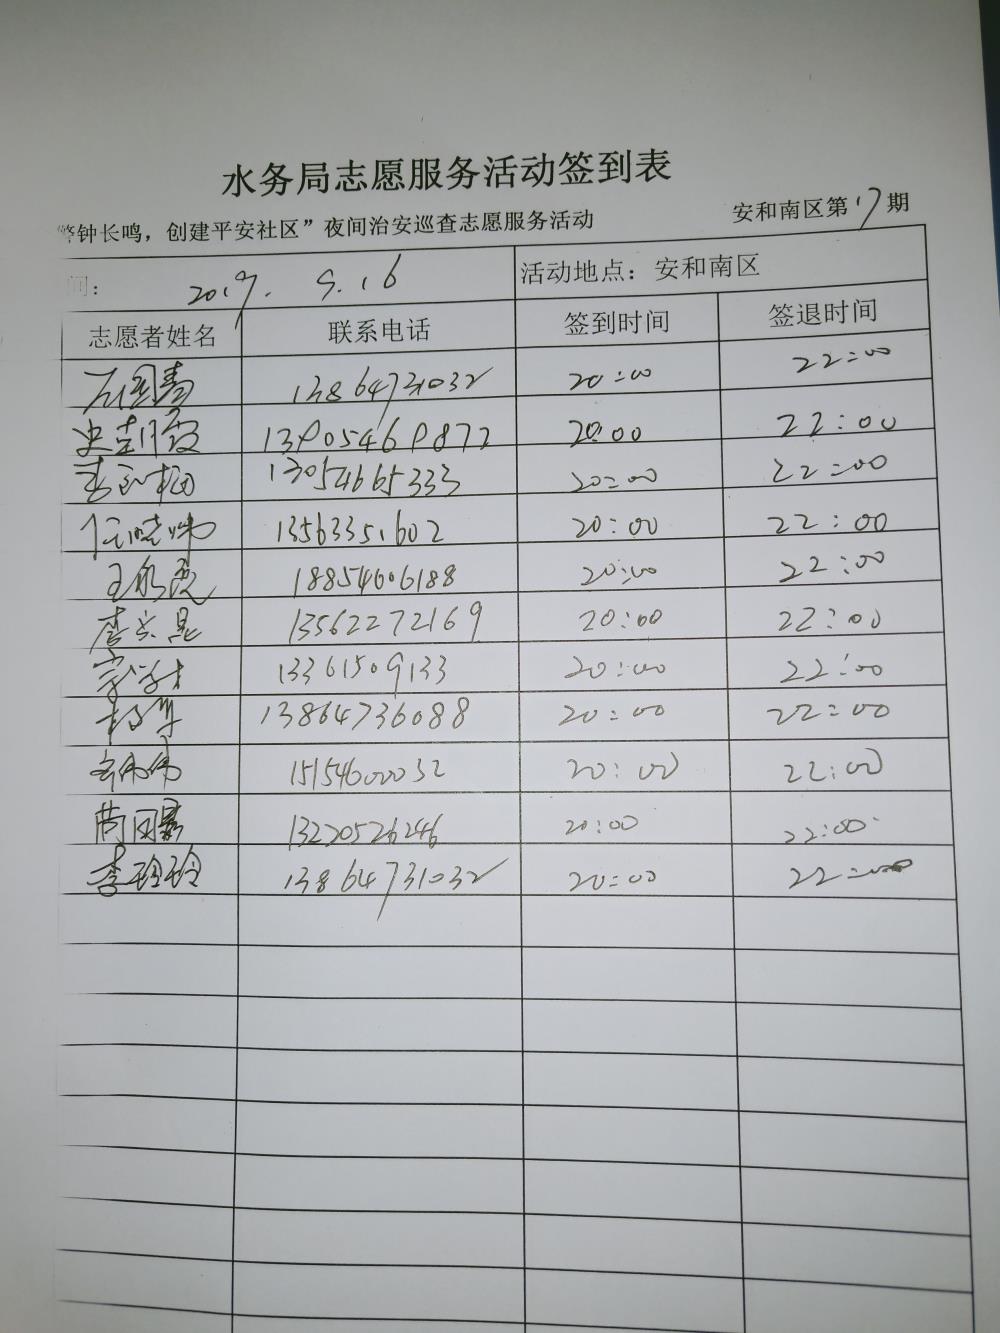 水务局志愿服务活动签到表
警钟长鸣，创建平安社区”夜间治安巡查志愿服务活动 安和南区第17期
间： 2019. 9.16 活动地点：安和南区
志愿者姓名 联系电话 签到时间 签退时间
13864731032 20:00 22:00
20:00 22:00
13054665333 20:00 22:00
任晓娜 13563351602 20:00 22:00
18854606188 20:00 22:00
13562272169 20:00 22:00
13361509133 20:00 22:00
13864736088 20:00 22:00
15154600032 20:00 22:00
13220526246 20:00 22:00
李玲玲 13864731032 20:00 22:00